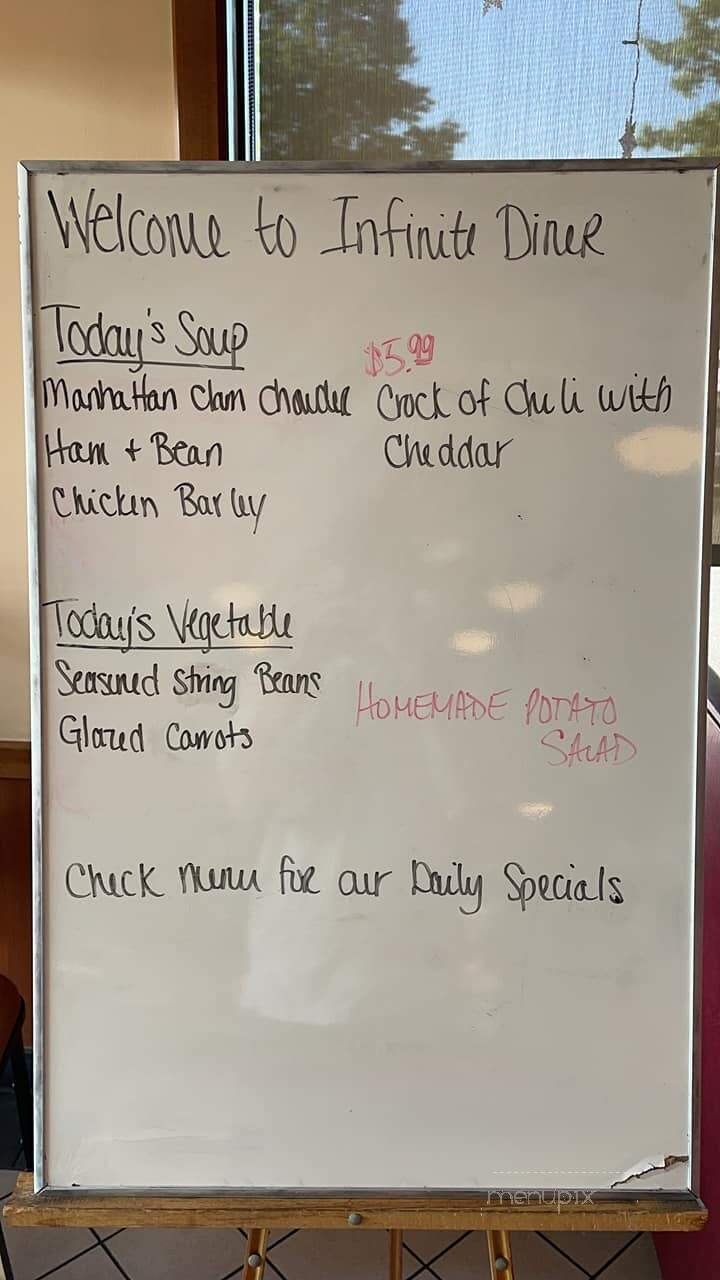 Welcome to Infinite Diner
Today's Soup
$5.99
Manhattan Clam Chowder
Crock of Chili with
Ham + Bean
Cheddar
Chicken Barley
Today's Vegetable
Seasoned String Beans
Glazed Carrots
HOMEMADE POTATO
SALAD
Check menu for our Daily Specials
menupix